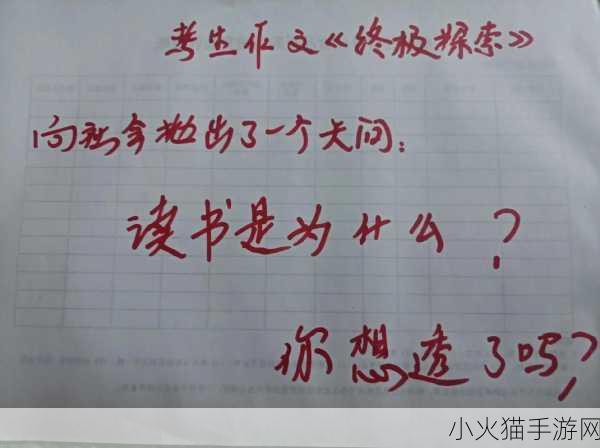 考生作文《终极探索》
向社会抛出了一个天问：
读书是为什么？
你想透了吗？
小火猫手游网